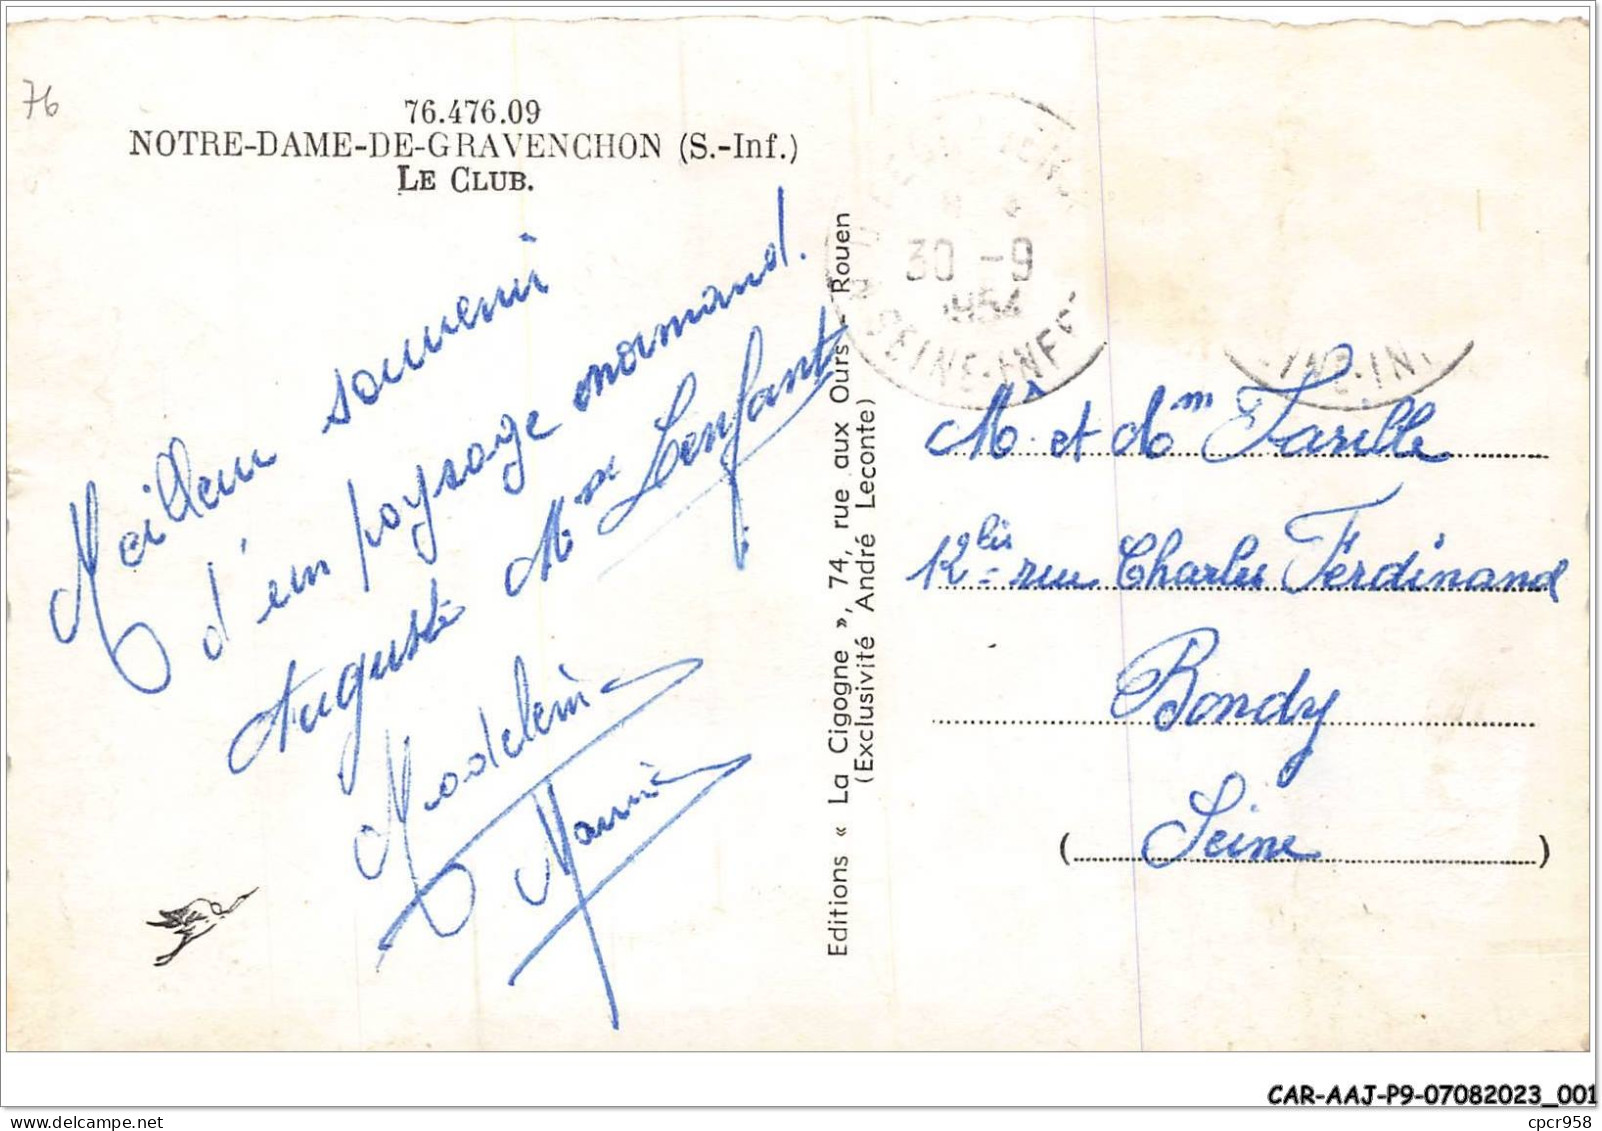 76
76.476.09
NOTRE-DAME-DE-GRAVENCHON (S.-Inf.)
LE CLUB.
Meilleur souvenir
d'un paysage normand.
Auguste Mme Lenfant
Madeleine
Mamie
Editions « La Cigogne », 74, rue aux Ours - Rouen
(Exclusivité André Leconte)
30 -9
1954
SEINE-INFRE
INE-INF
Mr et Mme Farille
12 bis rue Charles Ferdinand
Bondy
(Seine)
CAR-AAJ-P9-07082023_001
delcampe.net
cpcr958